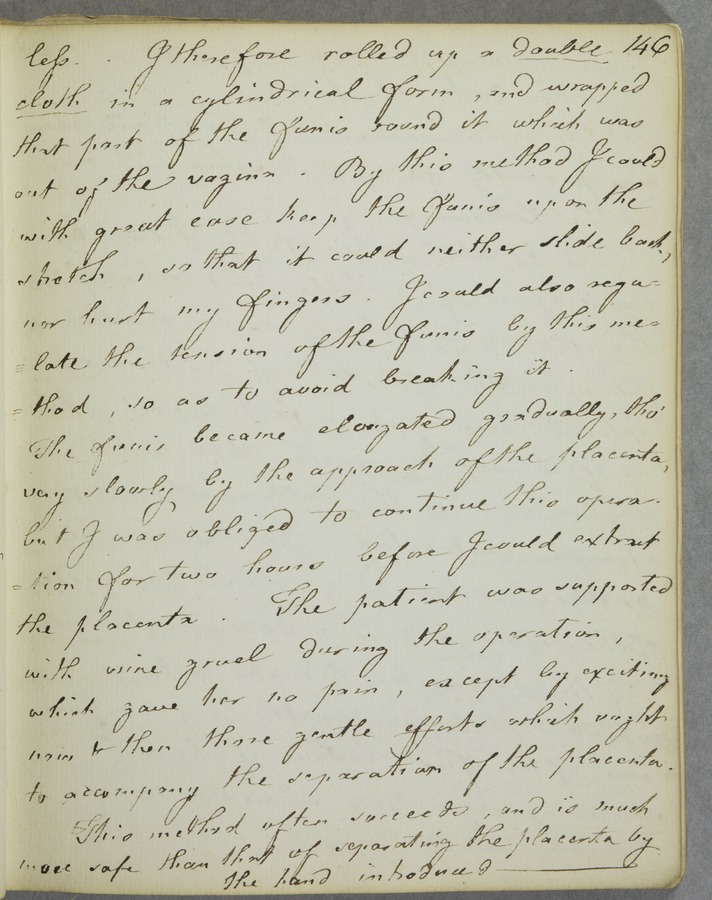 less. . I therefore rolled up a double 146
cloth in a cylindrical form, and wrapped
that part of the funis round it which was
out of the vagina. By this method I could
with great ease keep the funis upon the
stretch, so that it could neither slide back,
nor hurt my fingers. I could also regu=
=late the tension of the funis by this me=
=thod, so as to avoid breaking it.
The funis became elongated gradually, tho'
very slowly by the approach of the placenta,
but I was obliged to continue this opera-
=tion for two hours before I could extract
the placenta. The patient was supported
with wine gruel during the operation,
which gave her no pain, except by exciting
now & then those gentle efforts which ought
to accompany the separation of the placenta.
This method often succeeds, and is much
more safe than that of separating the placenta by
the hand introduced